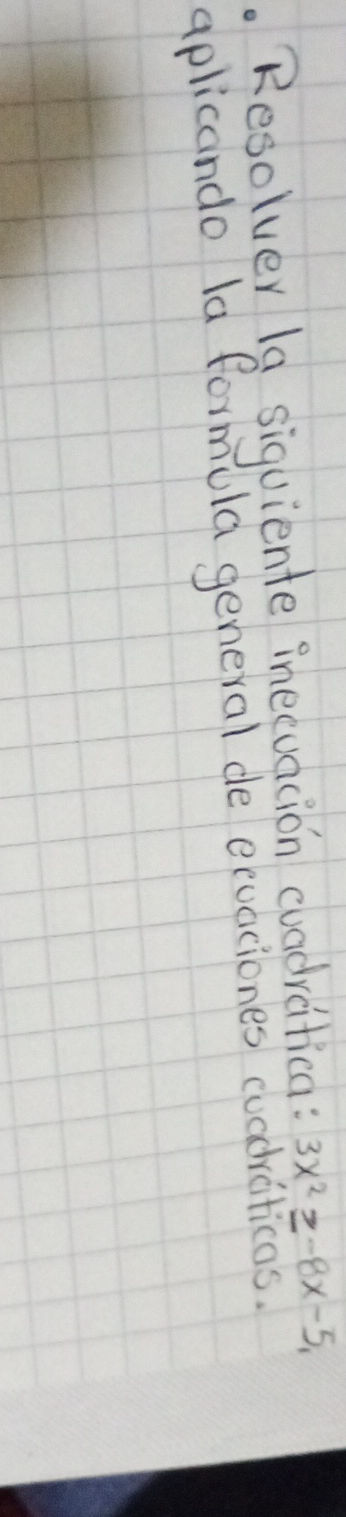 • Resolver la siguiente inecuación cuadrática: 3x² ≥ -8x-5,
aplicando la formula general de ecuaciones cuadráticas.